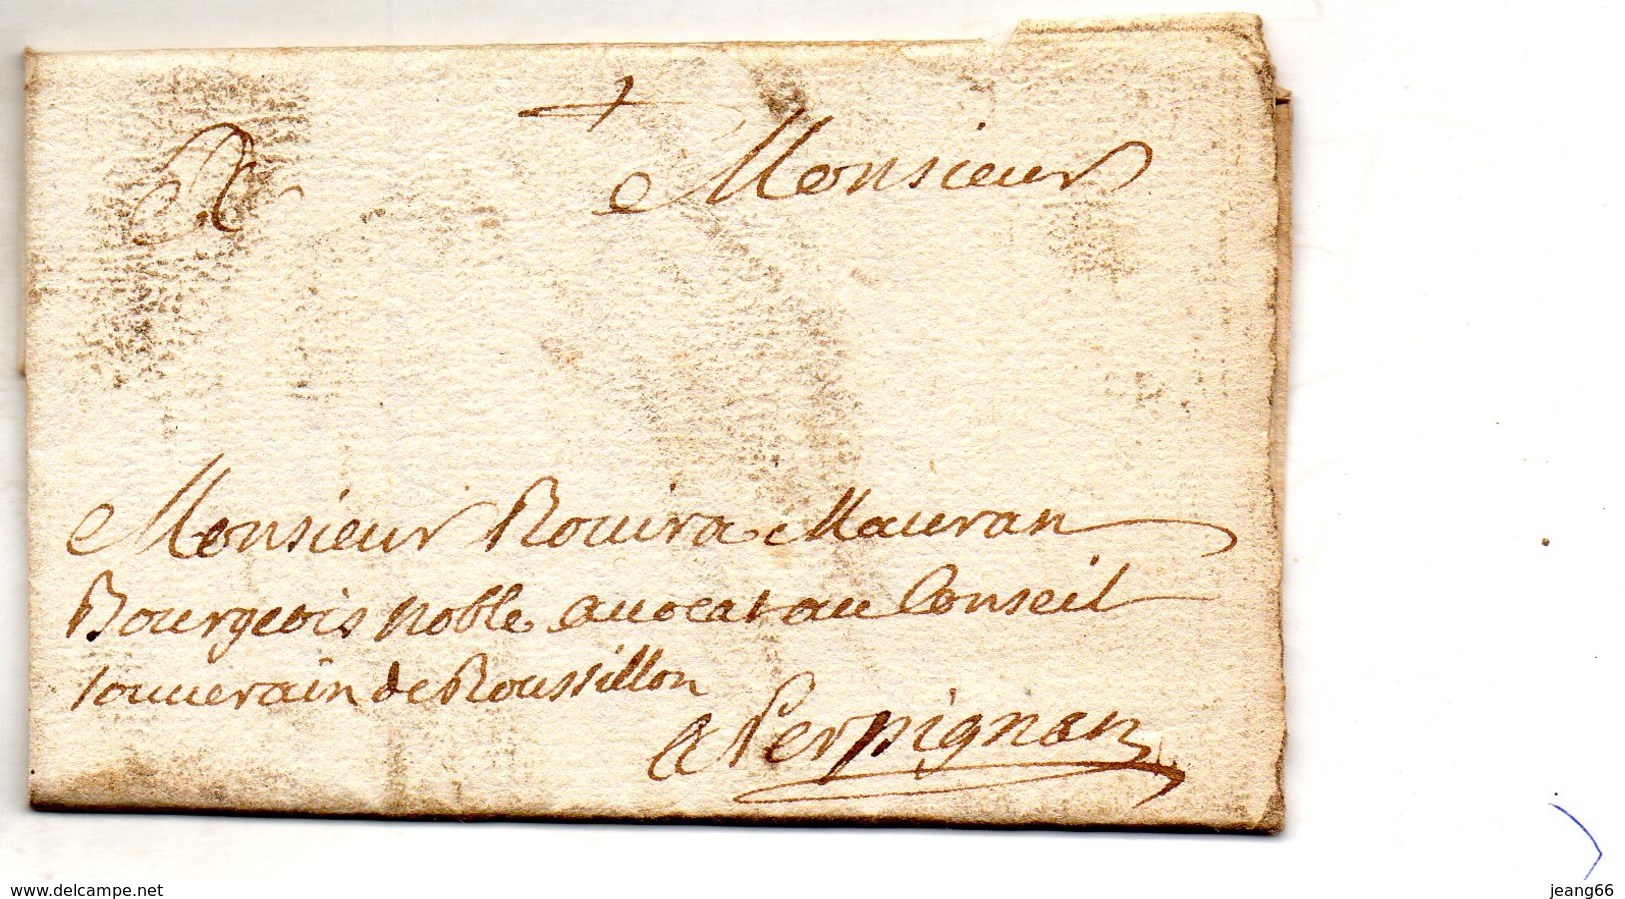 A
Monsieur
Monsieur Rouira Mauran
Bourgeois noble auocat au Conseil
souuerain de Roussillon
a Perpignan
www.delcampe.net
jeang66